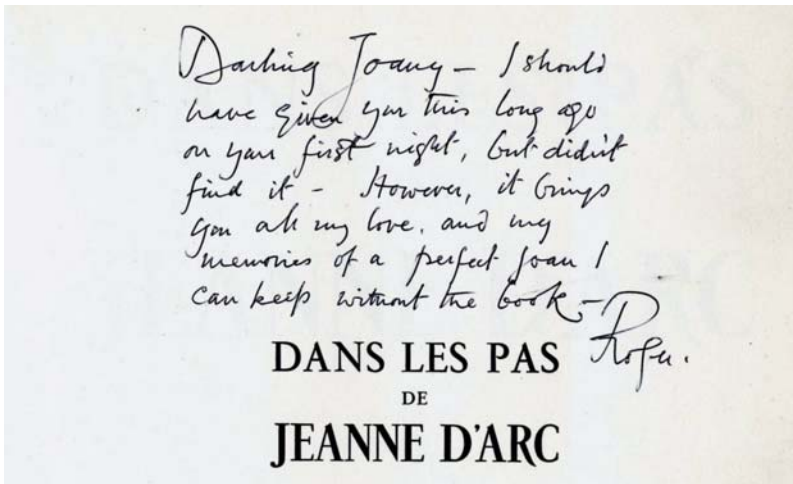 Darling Joany – I should
have given you this long ago
on your first night, but didn't
find it – However, it brings
you all my love, and my
memories of a perfect Joan I
can keep without the book –
Roger.
DANS LES PAS
DE
JEANNE D'ARC